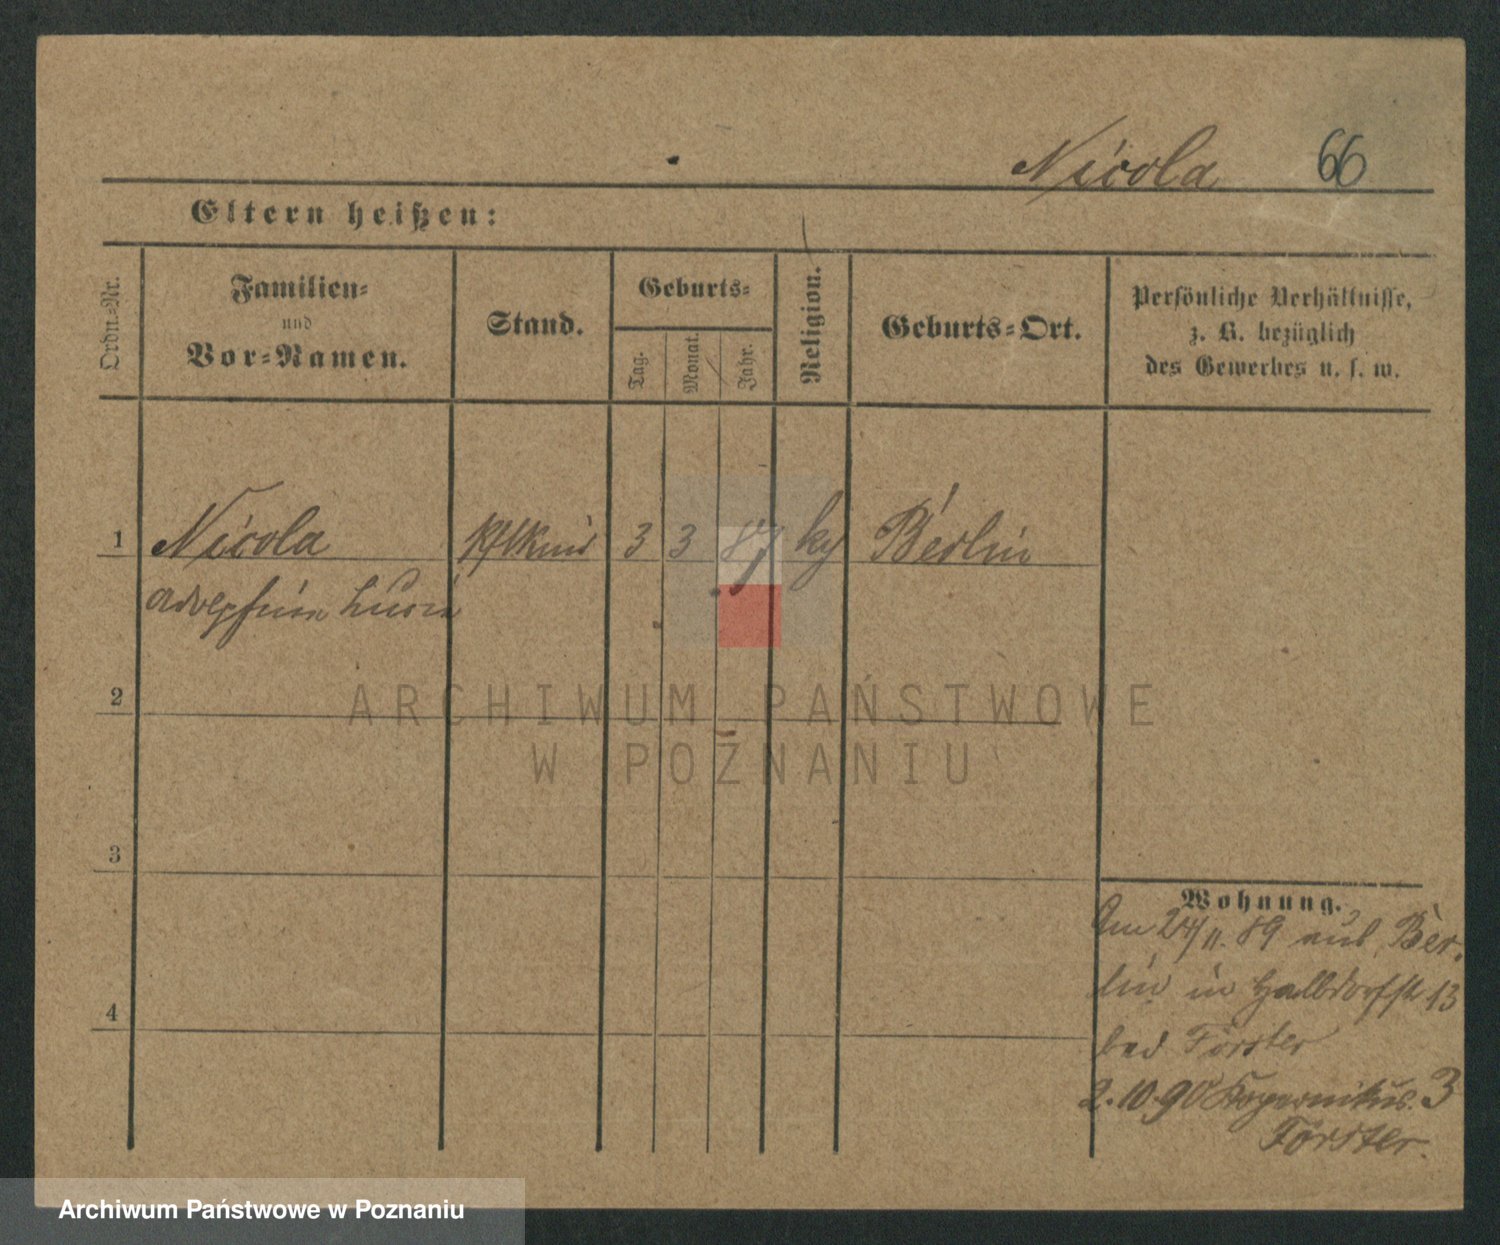 Nicola 66
Eltern heißen:
Ordn.-Nr.
Familien-
und
Vor-Namen.
Stand.
Geburts-
Tag.
Monat.
Jahr.
Religion.
Geburts-Ort.
Persönliche Verhältnisse,
z. B. bezüglich
des Gewerbes u. s. w.
1 Nicola 3 3 87 Berlin
2
3
4
Wohnung.
Am 24/11. 89 aus Ber-
lin in Halbdorfstr 13
bei Förster
2.10.90 Kopernikus. 3
Förster.
ARCHIWUM PAŃSTWOWE
W POZNANIU
Archiwum Państwowe w Poznaniu